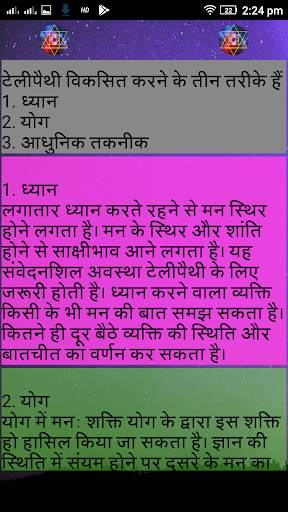 HD
22
2:24 pm
टेलीपैथी विकसित करने के तीन तरीके हैं
1. ध्यान
2. योग
3. आधुनिक तकनीक
1. ध्यान
लगातार ध्यान करते रहने से मन स्थिर
होने लगता है। मन के स्थिर और शांति
होने से साक्षीभाव आने लगता है। यह
संवेदनशिल अवस्था टेलीपेथी के लिए
जरूरी होती है। ध्यान करने वाला व्यक्ति
किसी के भी मन की बात समझ सकता है।
कितने ही दूर बैठे व्यक्ति की स्थिति और
बातचीत का वर्णन कर सकता है।
2. योग
योग में मन: शक्ति योग के द्वारा इस शक्ति
हो हासिल किया जा सकता है। ज्ञान की
स्थिति में संयम होने पर दूसरे के मन का